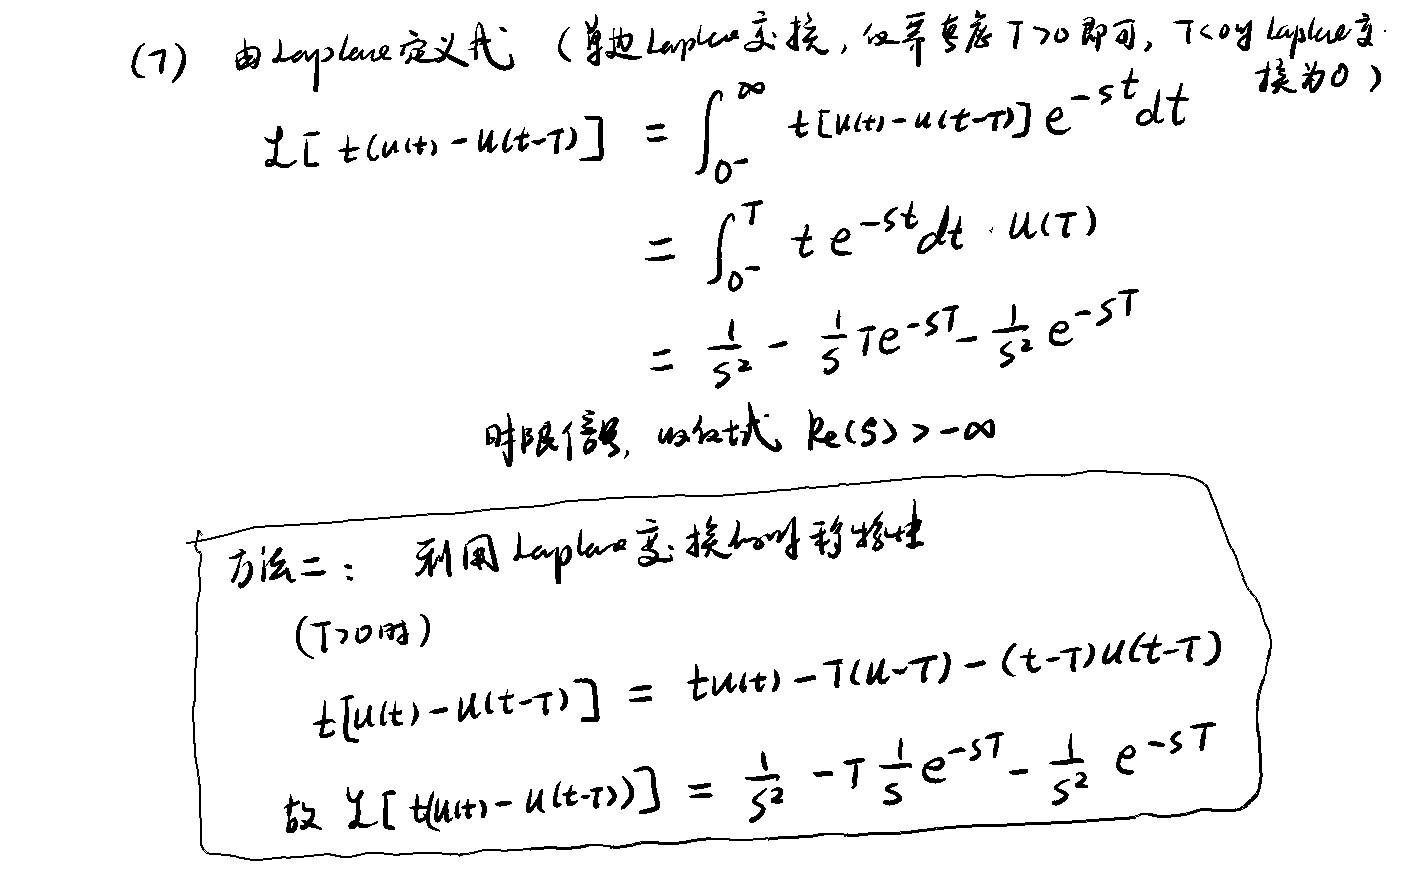 (7) 由Laplace定义式 (单边Laplace变换, 仅需考虑 T>0 即可, T<0时 Laplace变
换为0)
ℒ[t(u(t)-u(t-T)] = ∫_{0^-}^{∞} t[u(t)-u(t-T)] e^{-st} dt
= ∫_{0^-}^{T} t e^{-st} dt · u(T)
= \frac{1}{s^2} - \frac{1}{s} T e^{-sT} - \frac{1}{s^2} e^{-sT}
时限信号, 收敛域 Re(s) > -∞
方法二: 利用Laplace变换的时移特性
(T>0时)
t[u(t)-u(t-T)] = tu(t) - T(u-T) - (t-T)u(t-T)
故 ℒ[t(u(t)-u(t-T))] = \frac{1}{s^2} - T \frac{1}{s} e^{-sT} - \frac{1}{s^2} e^{-sT}